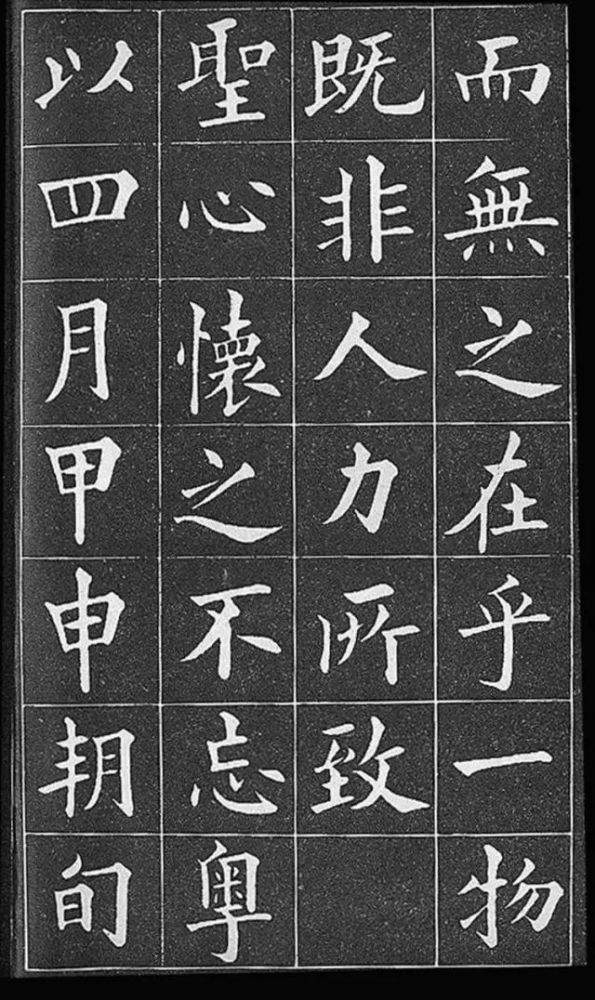 而無之在乎一物
既非人力所致
聖心懷之不忘粤
以四月甲申朔旬